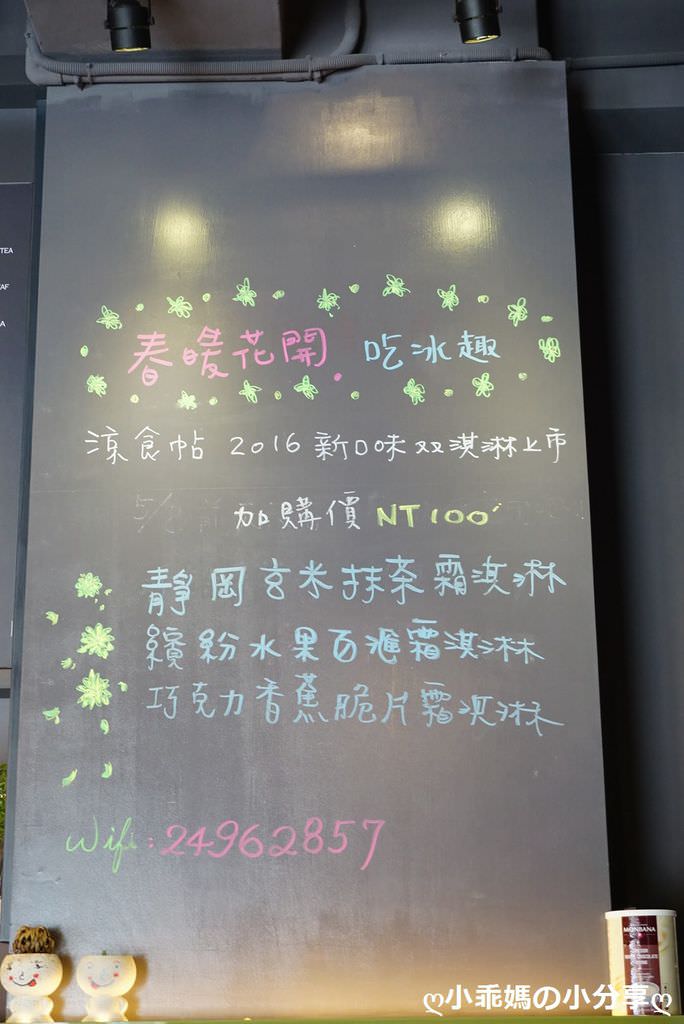 TEA
AF
A
春暖花開. 吃冰趣
涼食帖 2016 新口味双淇淋上市
加購價 NT 100
靜岡玄米抹茶霜淇淋
繽紛水果百滙霜淇淋
巧克力香蕉脆片霜淇淋
Wifi:24962857
MONBANA
ღ小乖媽の小分享ღ